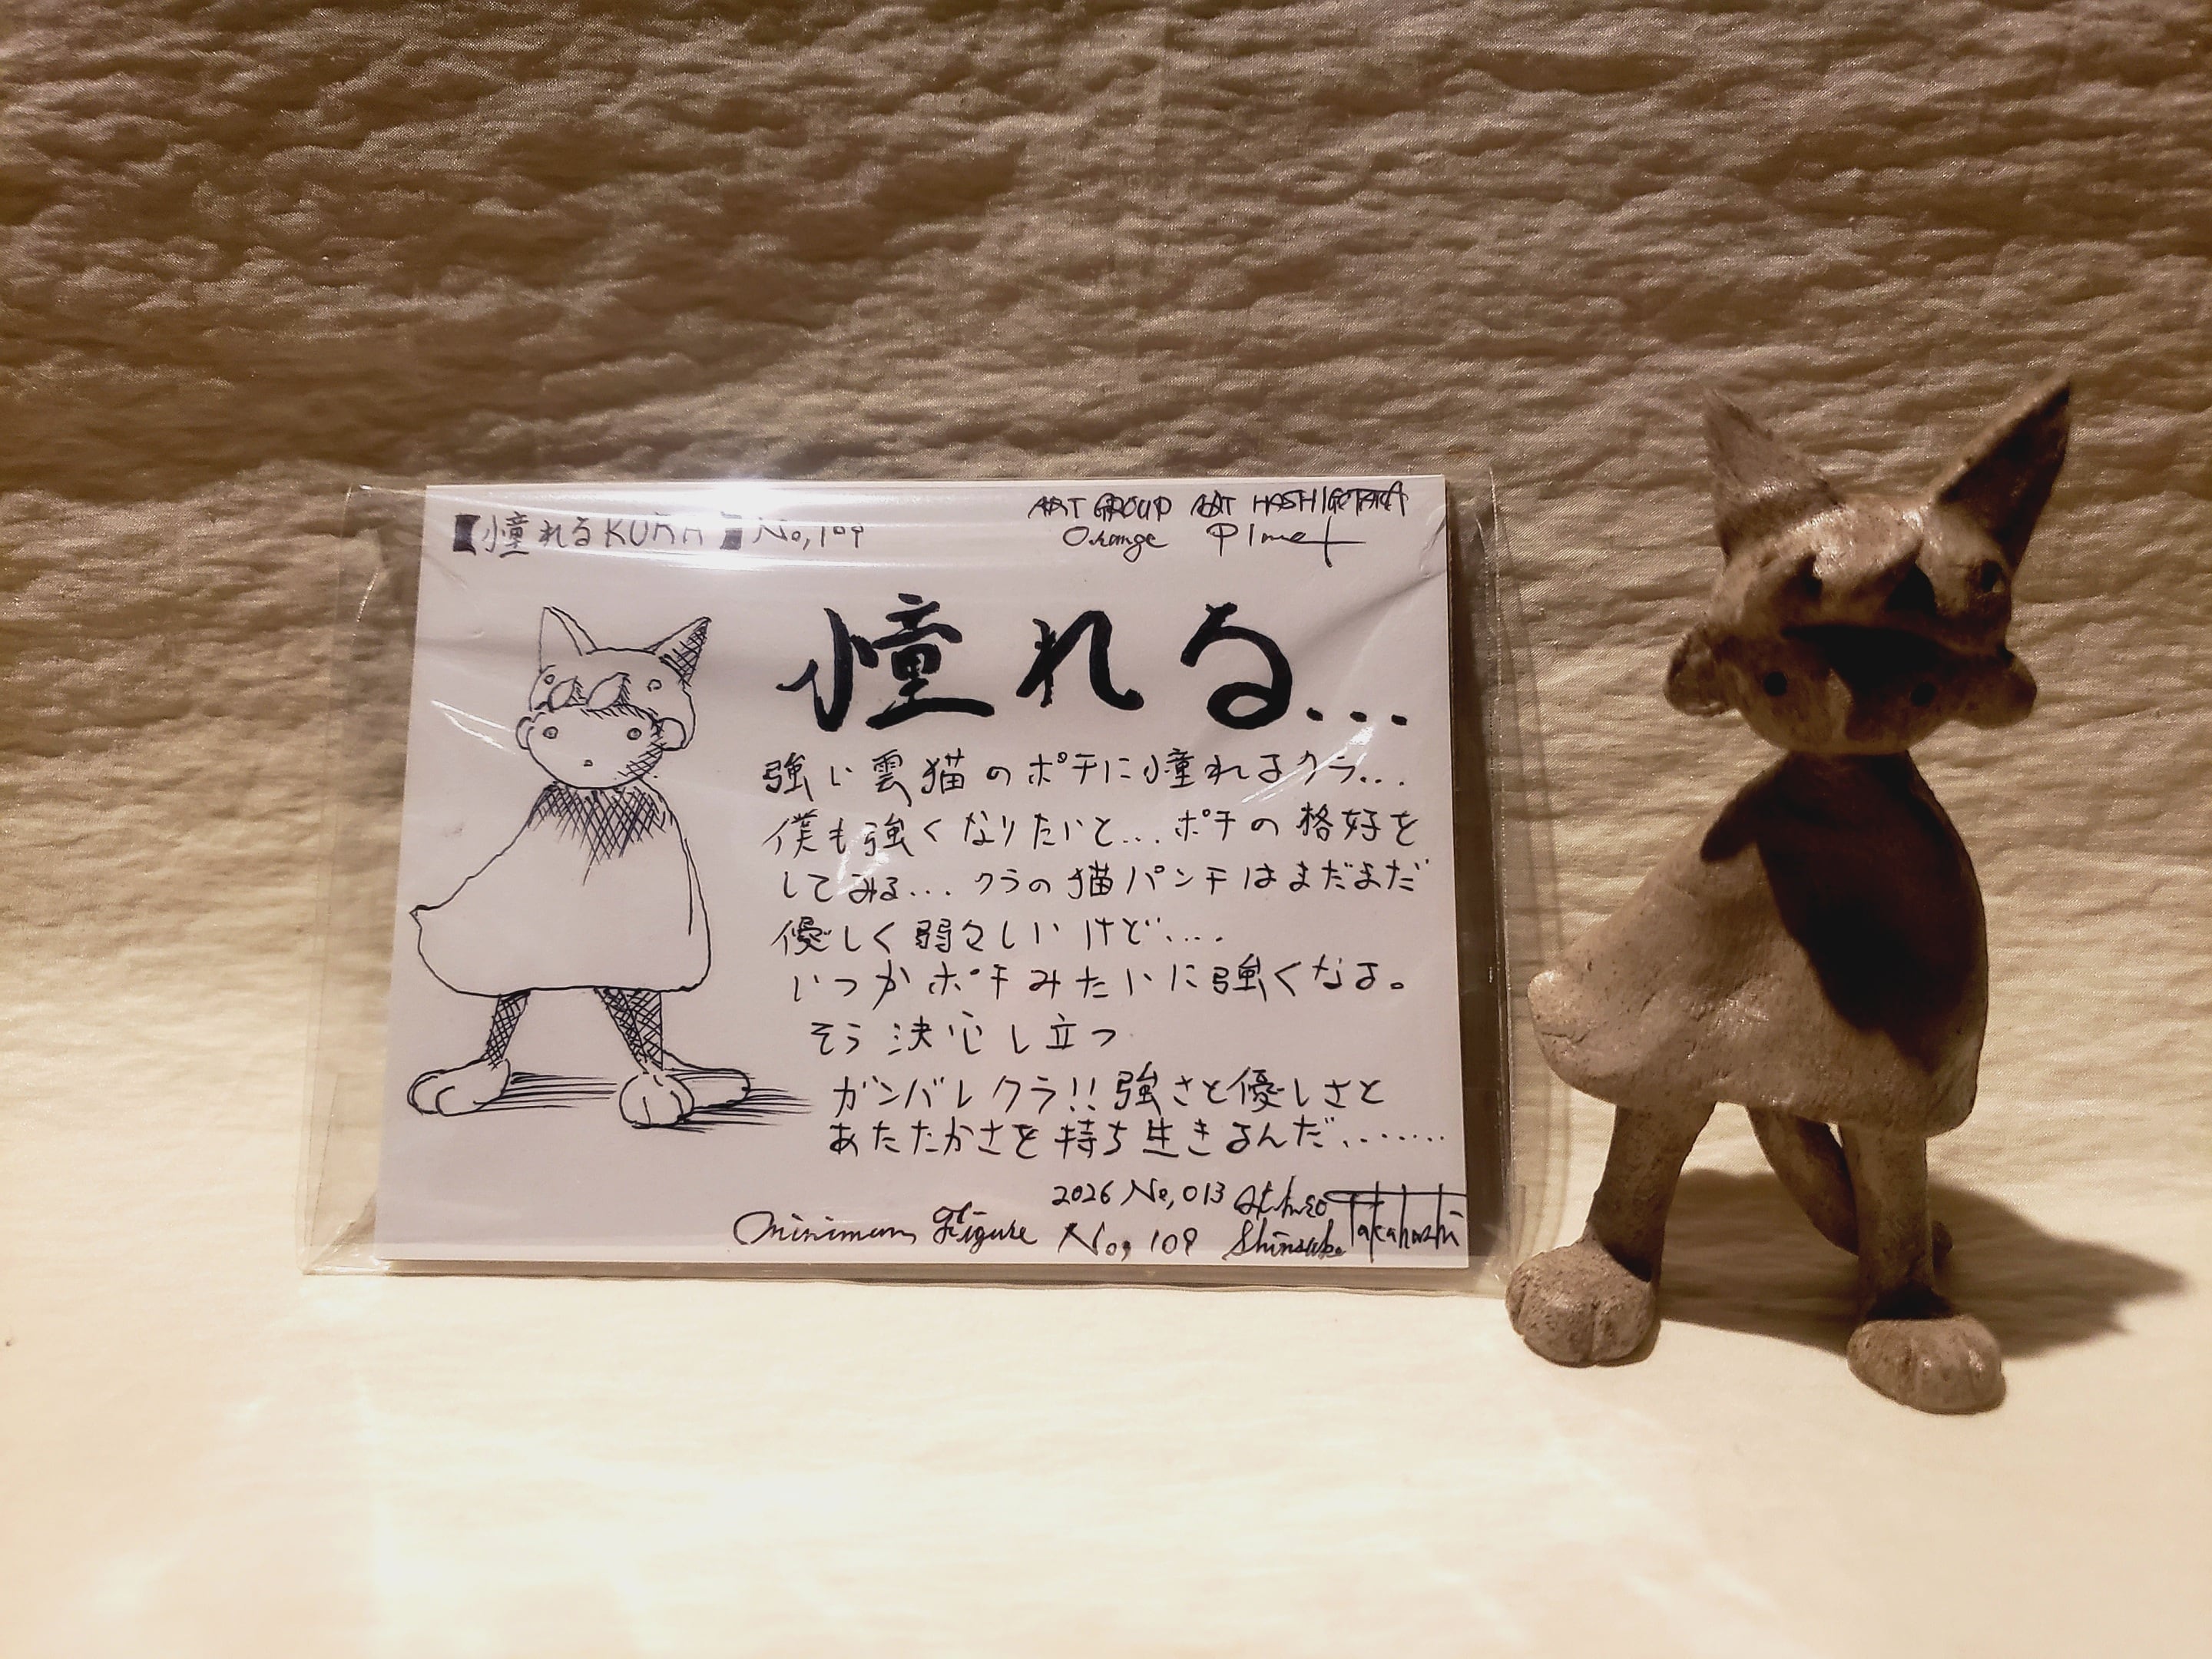 【憧れるKURA】No,109
ART GROUP ART HASHIGOTAKA
Orange Planet
憧れる...
強い雲猫のポチに憧れるクラ...
僕も強くなりたいと...ポチの格好を
してみる...クラの猫パンチはまだまだ
優しく弱々しいけど....
いつかポチみたいに強くなる。
そう決心し立つ
ガンバレクラ!!強さと優しさと
あたたかさを持ち生きるんだ.......
2026 No,013
Minimum Figure No, 109 Shinsuke Takahashi